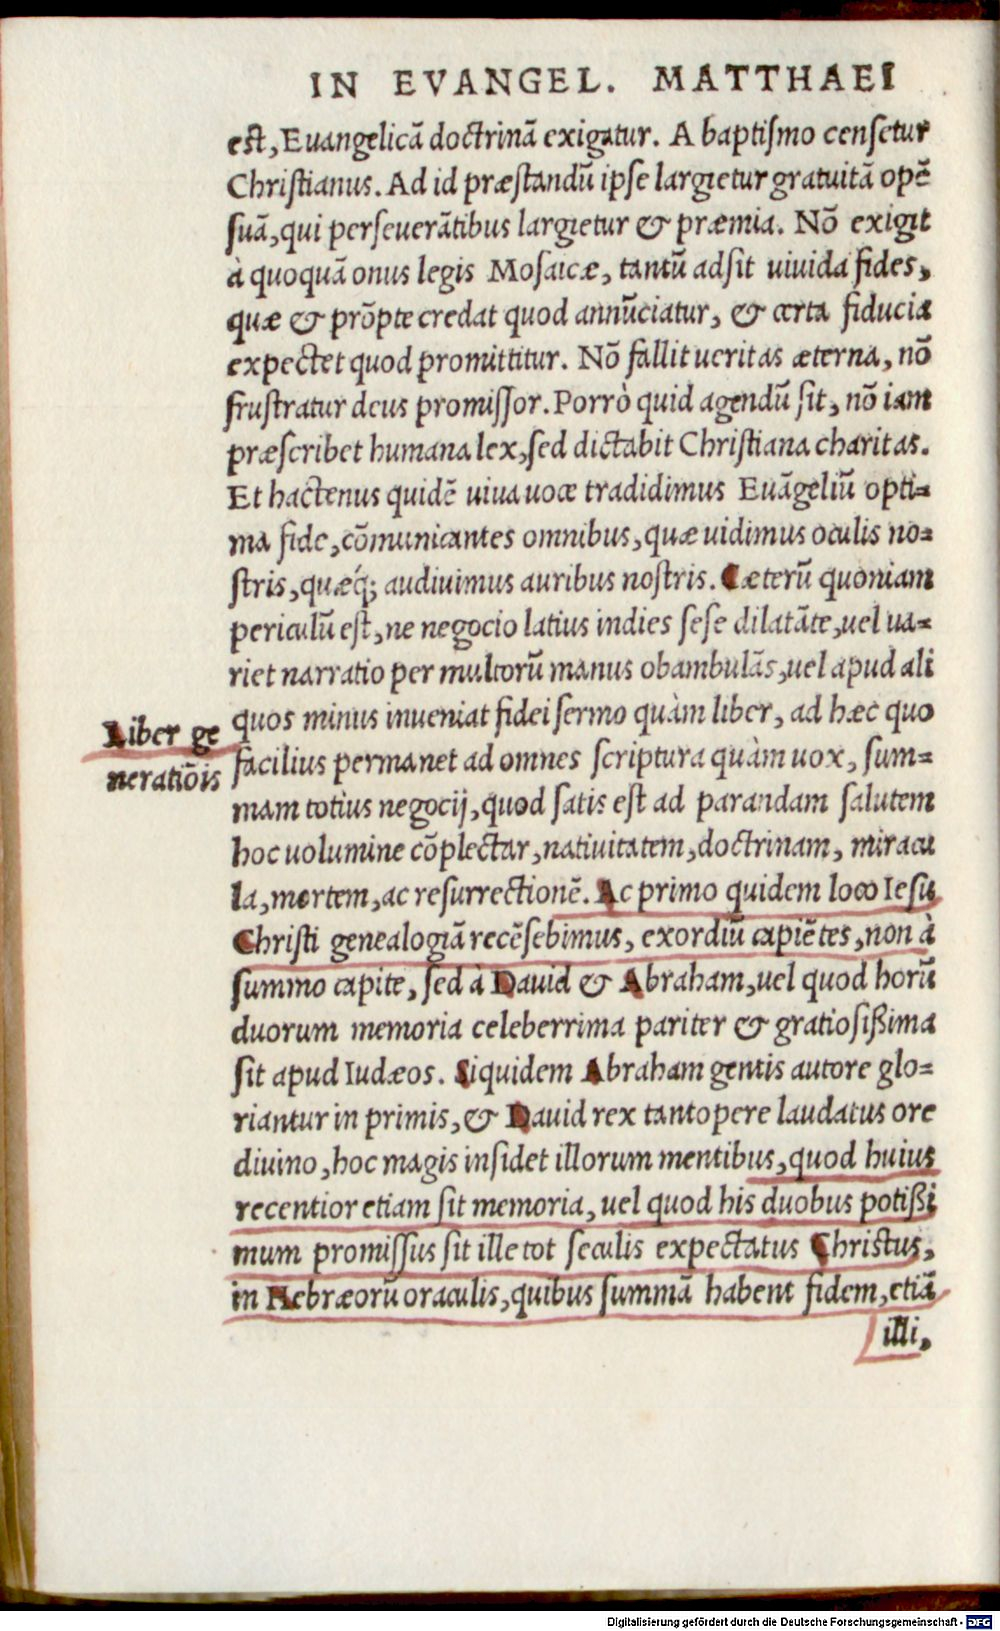 IN EVANGEL. MATTHAEI
est, Euangelicā doctrinā exigatur. A baptismo censetur
Christianus. Ad id præstandū ipse largietur gratuitā opē
suā, qui perseuerātibus largietur & præmia. Nō exigit
à quoquā onus legis Mosaicæ, tantū adsit uiuida fides,
quæ & prōpte credat quod annūciatur, & certa fiducia
expectet quod promittitur. Nō fallit ueritas æterna, nō
frustratur deus promissor. Porrò quid agendū sit, nō iam
præscribet humana lex, sed dictabit Christiana charitas.
Et hactenus quidē uiua uoce tradidimus Euāgeliū opti=
ma fide, cōmunicantes omnibus, quæ uidimus oculis no=
stris, quæq́; audiuimus auribus nostris. Cæterū quoniam
periculū est, ne negocio latius indies sese dilatāte, uel ua=
riet narratio per multorū manus obambulās, uel apud ali
quos minus inueniat fidei sermo quàm liber, ad hæc quo
Liber ge
neratiōis
facilius permanet ad omnes scriptura quàm uox, sum=
mam totius negocij, quod satis est ad parandam salutem
hoc uolumine cōplectar, natiuitatem, doctrinam, miracu
la, mortem, ac resurrectionē. Ac primo quidem loco Iesu
Christi genealogiā recēsebimus, exordiū capiētes, non à
summo capite, sed à Dauid & Abraham, uel quod horū
duorum memoria celeberrima pariter & gratiosißima
sit apud Iudæos. Siquidem Abraham gentis autore glo=
riantur in primis, & Dauid rex tantopere laudatus ore
diuino, hoc magis insidet illorum mentibus, quod huius
recentior etiam sit memoria, uel quod his duobus potißi
mum promissus sit ille tot seculis expectatus Christus,
in Hebræorū oraculis, quibus summā habent fidem, etiā
illi,
Digitalisierung gefördert durch die Deutsche Forschungsgemeinschaft - DFG